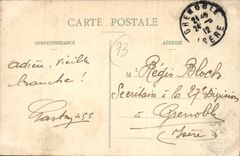 CARTE POSTALE
GRENOBLE
ISÈRE
CORRESPONDANCE
ADRESSE
73
adieu, vieille
branche !
M Régis Bloch
Secrétaire à la 27e Division
à Grenoble
(Isère)